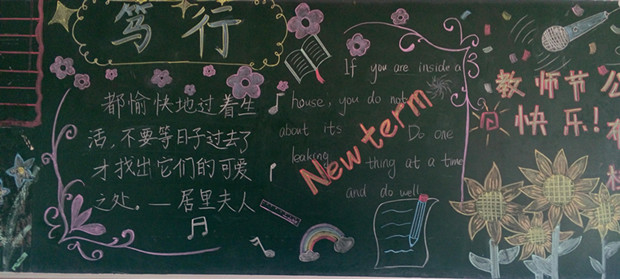 笃行
都愉快地过着生
活,不要等日子过去了
才找出它们的可爱
之处。—居里夫人
If you are inside a
house, you do not
about its Do one
leaking thing at a time
and do well
New term
教师节
快乐!